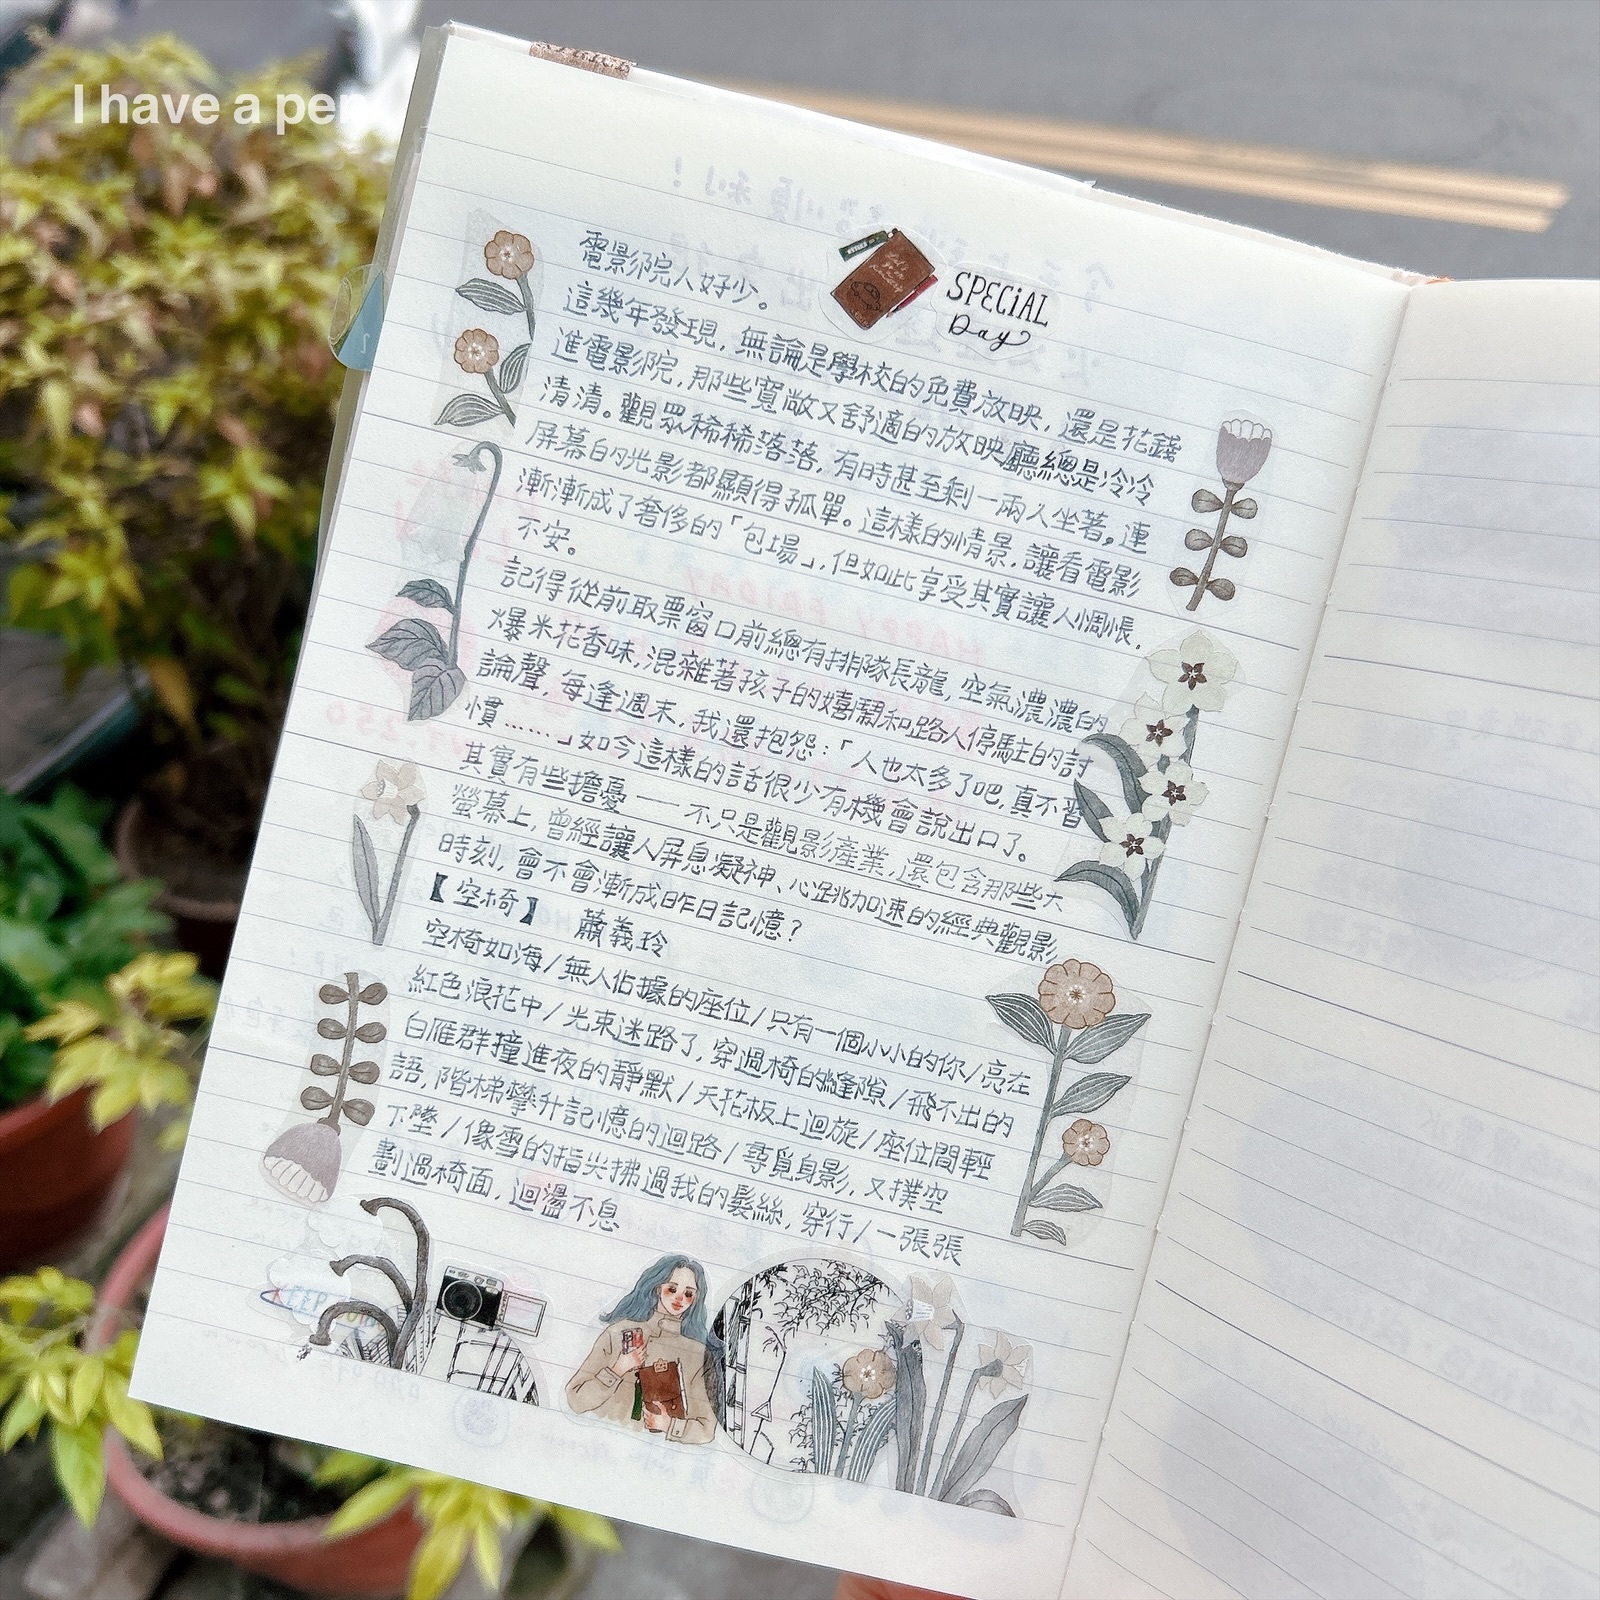 I have a pen
SPECiAL
Day
電影院人好少。
這幾年發現,無論是學校的免費放映,還是花錢
進電影院,那些寬敞又舒適的放映廳總是冷冷
清清。觀眾稀稀落落,有時甚至剩一兩人坐著。連
屏幕的光影都顯得孤單。這樣的情景,讓看電影
漸漸成了奢侈的「包場」,但如此享受其實讓人惆悵,
不安。
記得從前取票窗口前總有排隊長龍,空氣濃濃的
爆米花香味,混雜著孩子的嬉鬧和路人停駐的討
論聲,每逢週末,我還抱怨:「人也太多了吧,真不習
慣……」如今這樣的話很少有機會說出口了。
其實有些擔憂——不只是觀影產業,還包含那些大
螢幕上,曾經讓人屏息凝神、心跳加速的經典觀影
時刻,會不會漸成昨日記憶?
【空椅】 蕭義玲
空椅如海/無人佔據的座位/只有一個小小的你/亮在
紅色浪花中/光束迷路了,穿過椅的縫隙/飛不出的
白雁群撞進夜的靜默/天花板上迴旋/座位間輕
語,階梯攀升記憶的迴路/尋覓身影,又撲空
下墜/像雪的指尖拂過我的髮絲,穿行/一張張
劃過椅面,迴盪不息
KEEP